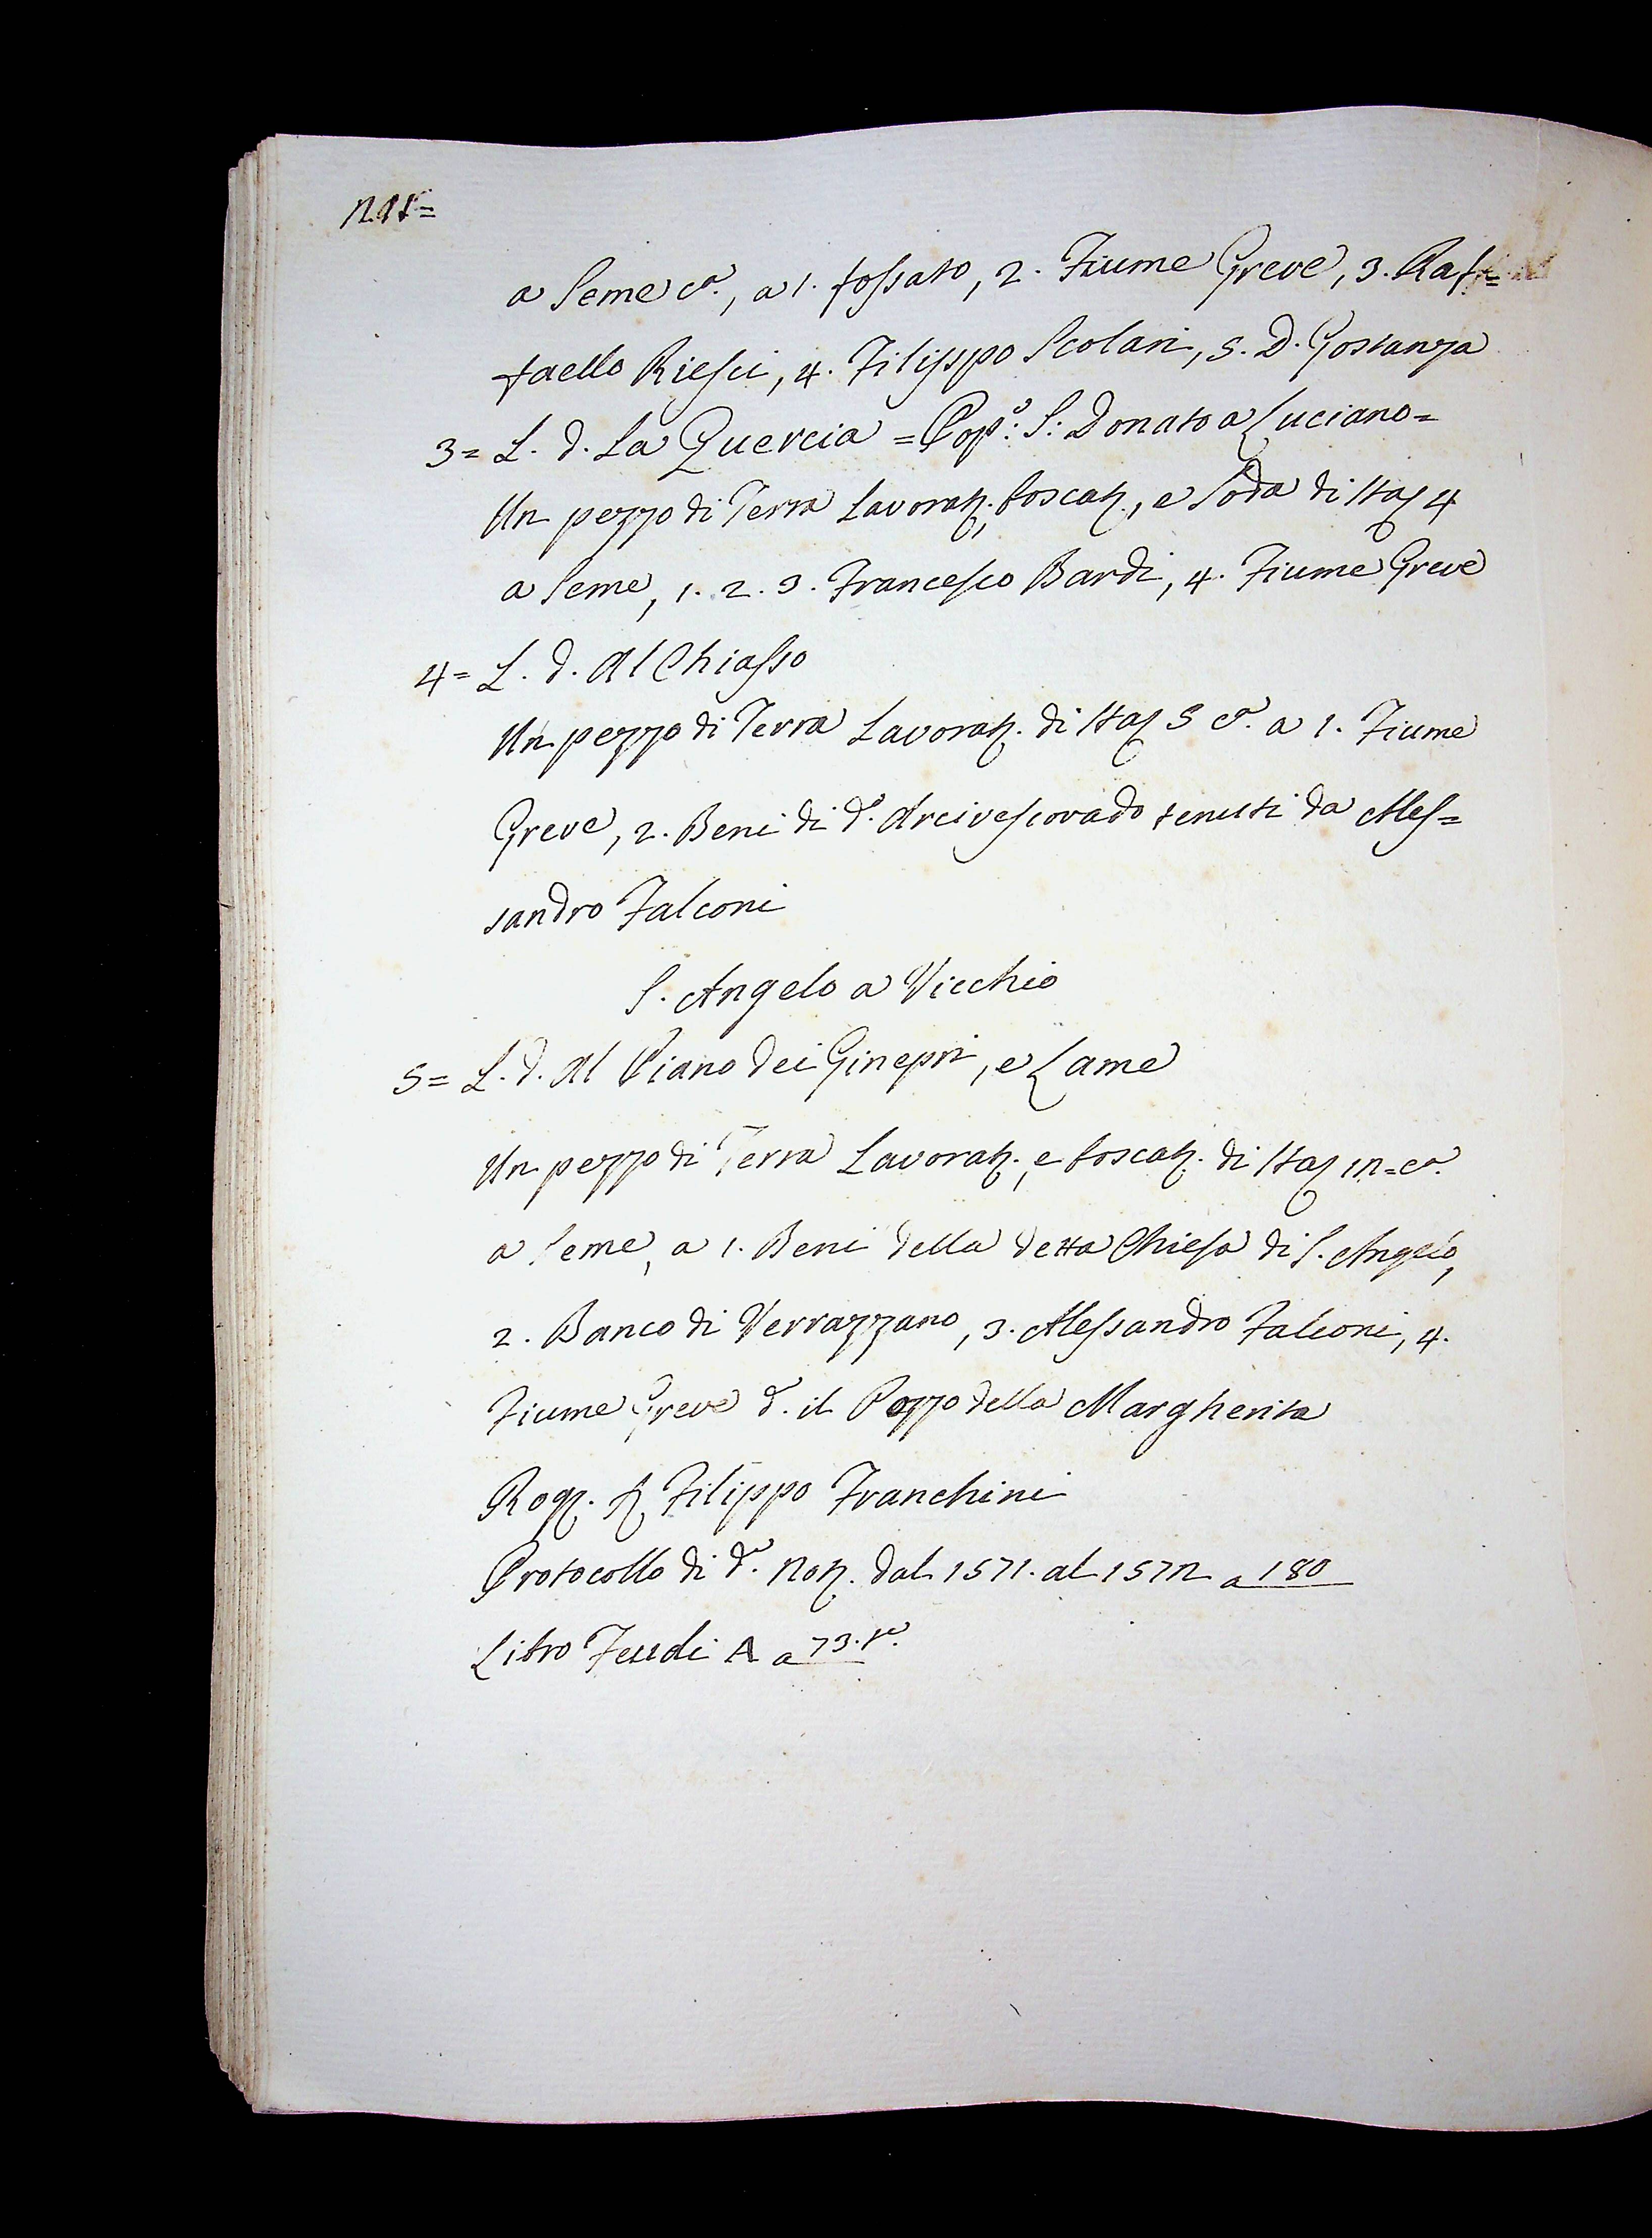 a Seme c.ª, a 1. fossato, 2. Fiume Greve, 3. Raf=
faello Riesci, 4. Filippo Scolari, 5. D. Gostanza
3= L. d. La Quercia = Pop.º: S: Donato a Luciano=
Un pezzo di Terra Lavorat., boscat., e soda di Staj 4
a Seme, 1. 2. 3. Francesco Bardi, 4. Fiume Greve
4= L. d. Al Chiasso
Un pezzo di Terra Lavorat. di Staj 5 c.ª a 1. Fiume
Greve, 2. Beni di d.º Arcivescovado tenuti da Ales=
sandro Falconi
S. Angelo a Vicchio
5= L. d. Al Piano dei Ginepri, e Lame
Un pezzo di Terra Lavorat., e boscat. di Staj 12= c.ª
a Seme, a 1. Beni della detta Chiesa di S. Angelo,
2. Banco di Verrazzano, 3. Alessandro Falconi, 4.
Fiume Greve d.º il Pozzo della Margherita
Rog. S. Filippo Franchini
Protocollo di d.º Not. dal 1571. al 1572 a 180
Libro Feudi A a 73. t.º